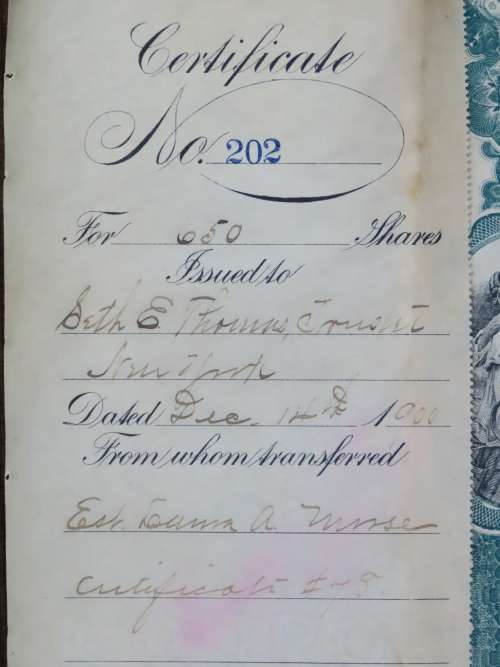 Certificate
No. 202
For 650 Shares
Issued to
Seth E Thomas,
New York
Dated Dec. 14th 1900
From whom transferred
Est. A Morse
Certificate #48